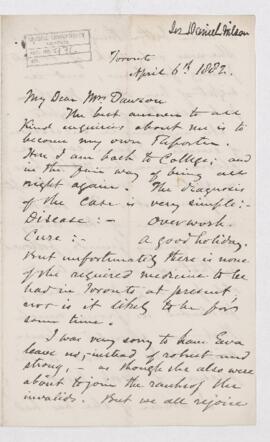 Sir Daniel Wilson
Toronto
April 6th 1882.
My Dear Mrs Dawson
The best answer to all
kind enquiries about me is to
become my own Reporter.
Here I am back to College; and
in the fair way of being all
right again. The diagnosis
of the case is very simple:-
Disease:- Overwork.
Cure:- A good holiday.
But unfortunately there is none
of the required medicine to be
had in Toronto at present,
nor is it likely to be for
some time.
I was very sorry to hear Eva
leave us, instead of robust and
strong, - as though she also were
about to join the ranks of the
invalids. But we all rejoice